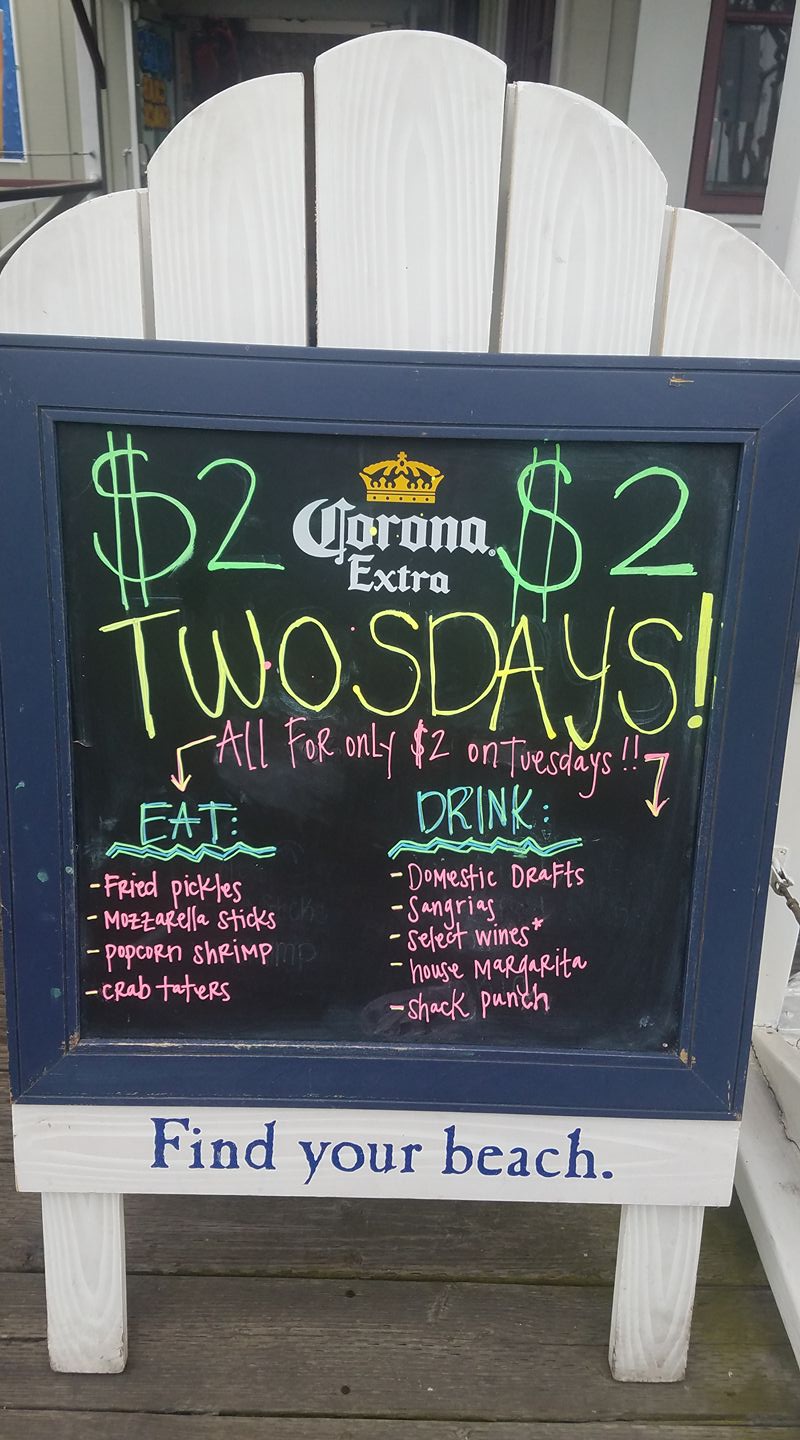 $2 Corona. $2
Extra
TWOSDAYS!
All For only $2 on Tuesdays!!
EAT:
- Fried pickles
- Mozzarella sticks
- popcorn shrimp
- crab taters
DRINK:
- Domestic Drafts
- Sangrias
- select wines*
- house Margarita
- shack punch
Find your beach.